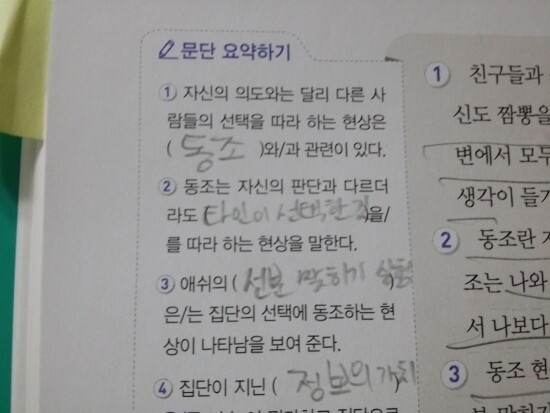 문단 요약하기
① 자신의 의도와는 달리 다른 사
람들의 선택을 따라 하는 현상은
( 동조 )와/과 관련이 있다.
② 동조는 자신의 판단과 다르더
라도 타인이 선택한 을/
를 따라 하는 현상을 말한다.
③ 애쉬의 ( 선분 맞히기 실험
은/는 집단의 선택에 동조하는 현
상이 나타남을 보여 준다.
④ 집단이 지닌 ( 정보의
① 친구들과
신도 짬뽕을
변에서 모두
생각이 들기
② 동조란
조는 나와
서 나보다
③ 동조 현